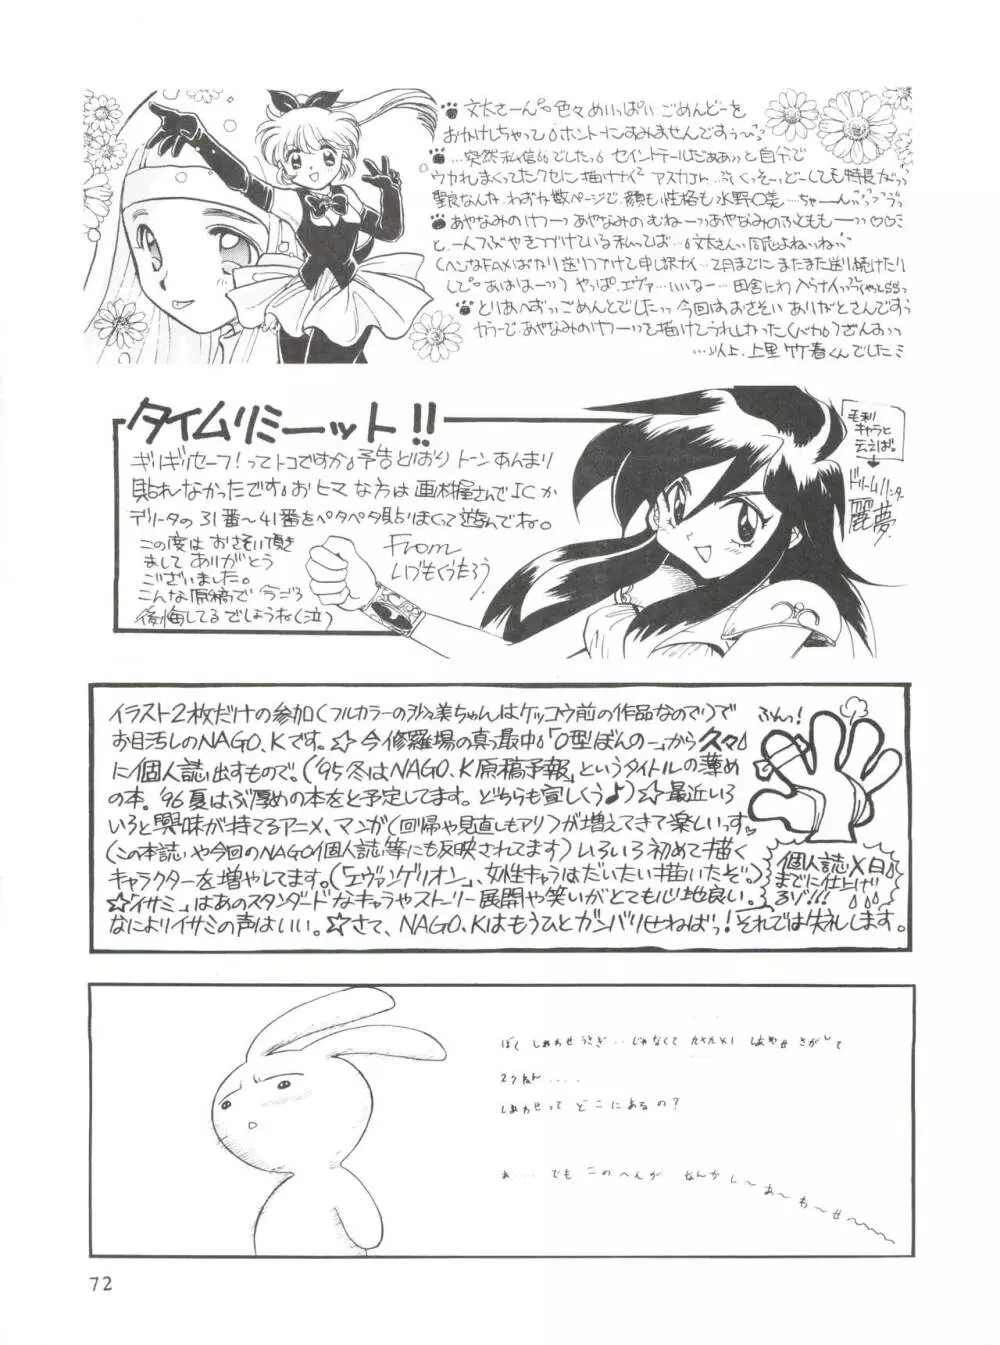 文太さーん色々めいっぱいごめんどーを
おかけしちゃってホントーにすみませんですぅ〜
…突然私信でしたっ セイントテールだぁぁっと自分で
ウカれまくってたクセに描けない アスカJr.…くっそーっどーしても特長がっ
聖良なんか、わずか数ページで、顔も性格も水野〇美…ちゃーんっ
あやなみのけつーっあやなみのむねーっあやなみのふとももーっ♡♡ミ
と、一人つぶやきつづけている私ってば…文太さんっ同志よねっねっ
(ヘンなFAXばかり送りつけて申し訳ナイ…2月までにまたまた送り続けたり
して。あははーっ) やっぱ、エヴァ…いいなー…田舎にわ
とりあへずっごめんとでしたっ今回はおさそいありがとさんですっ
…以上、上里竹春くんでしたミ
タイムリミーット!!
ギリギリセーフ!ってトコですか 予告どおり トーンあんまり
貼れなかったです。おヒマな方は画材屋さんでICか
デリータの31番〜41番をペタペタ貼りまくって遊んでね。
この度はおさそい頂き
まして ありがとう
ございました。
こんな原稿で 今ごろ
後悔してるでしょうね(泣)
From
いづもくうたろう
毛利
キャラと
云えば。
ドリームハンター
麗夢
イラスト2枚だけの参加(フルカラーの美ちゃんはケッコウ前の作品なので)で
お目汚しのNAGO.Kです。☆今修羅場の真っ最中「O型ぼんのー」から久々
に個人誌出すもので。(「'95冬はNAGO.K原稿予報」というタイトルの薄め
の本。'96夏はぶ厚めの本をと予定してます。どちらも宜しくぅ♪)☆最近いろ
いろと興味が持てるアニメ、マンガ(回帰や見直しもアリ)が増えてきて楽しいっす♡
(この本誌や今回のNAGO個人誌等にも反映されてます)いろいろ初めて描く
キャラクターを増やしてます。(「エヴァンゲリオン」、女性キャラはだいたい描いたぞ。)
☆「イサミ」はあのスタンダードなキャラやストーリー展開や笑いがとても心地良い。
なによりイサミの声はいい。☆さて、NAGO.Kはもうひとガンバリせねばっ!それでは失礼します。
ふんっ!
個人誌X日
までに仕上げ
るゾ!!!
ぼく しあわせうさぎ‥じゃなくて しあわせ さがして
2クねん....
しあわせって どこにあるの?
あ... でも このへんが なんか し〜あ〜わ〜せ〜
72